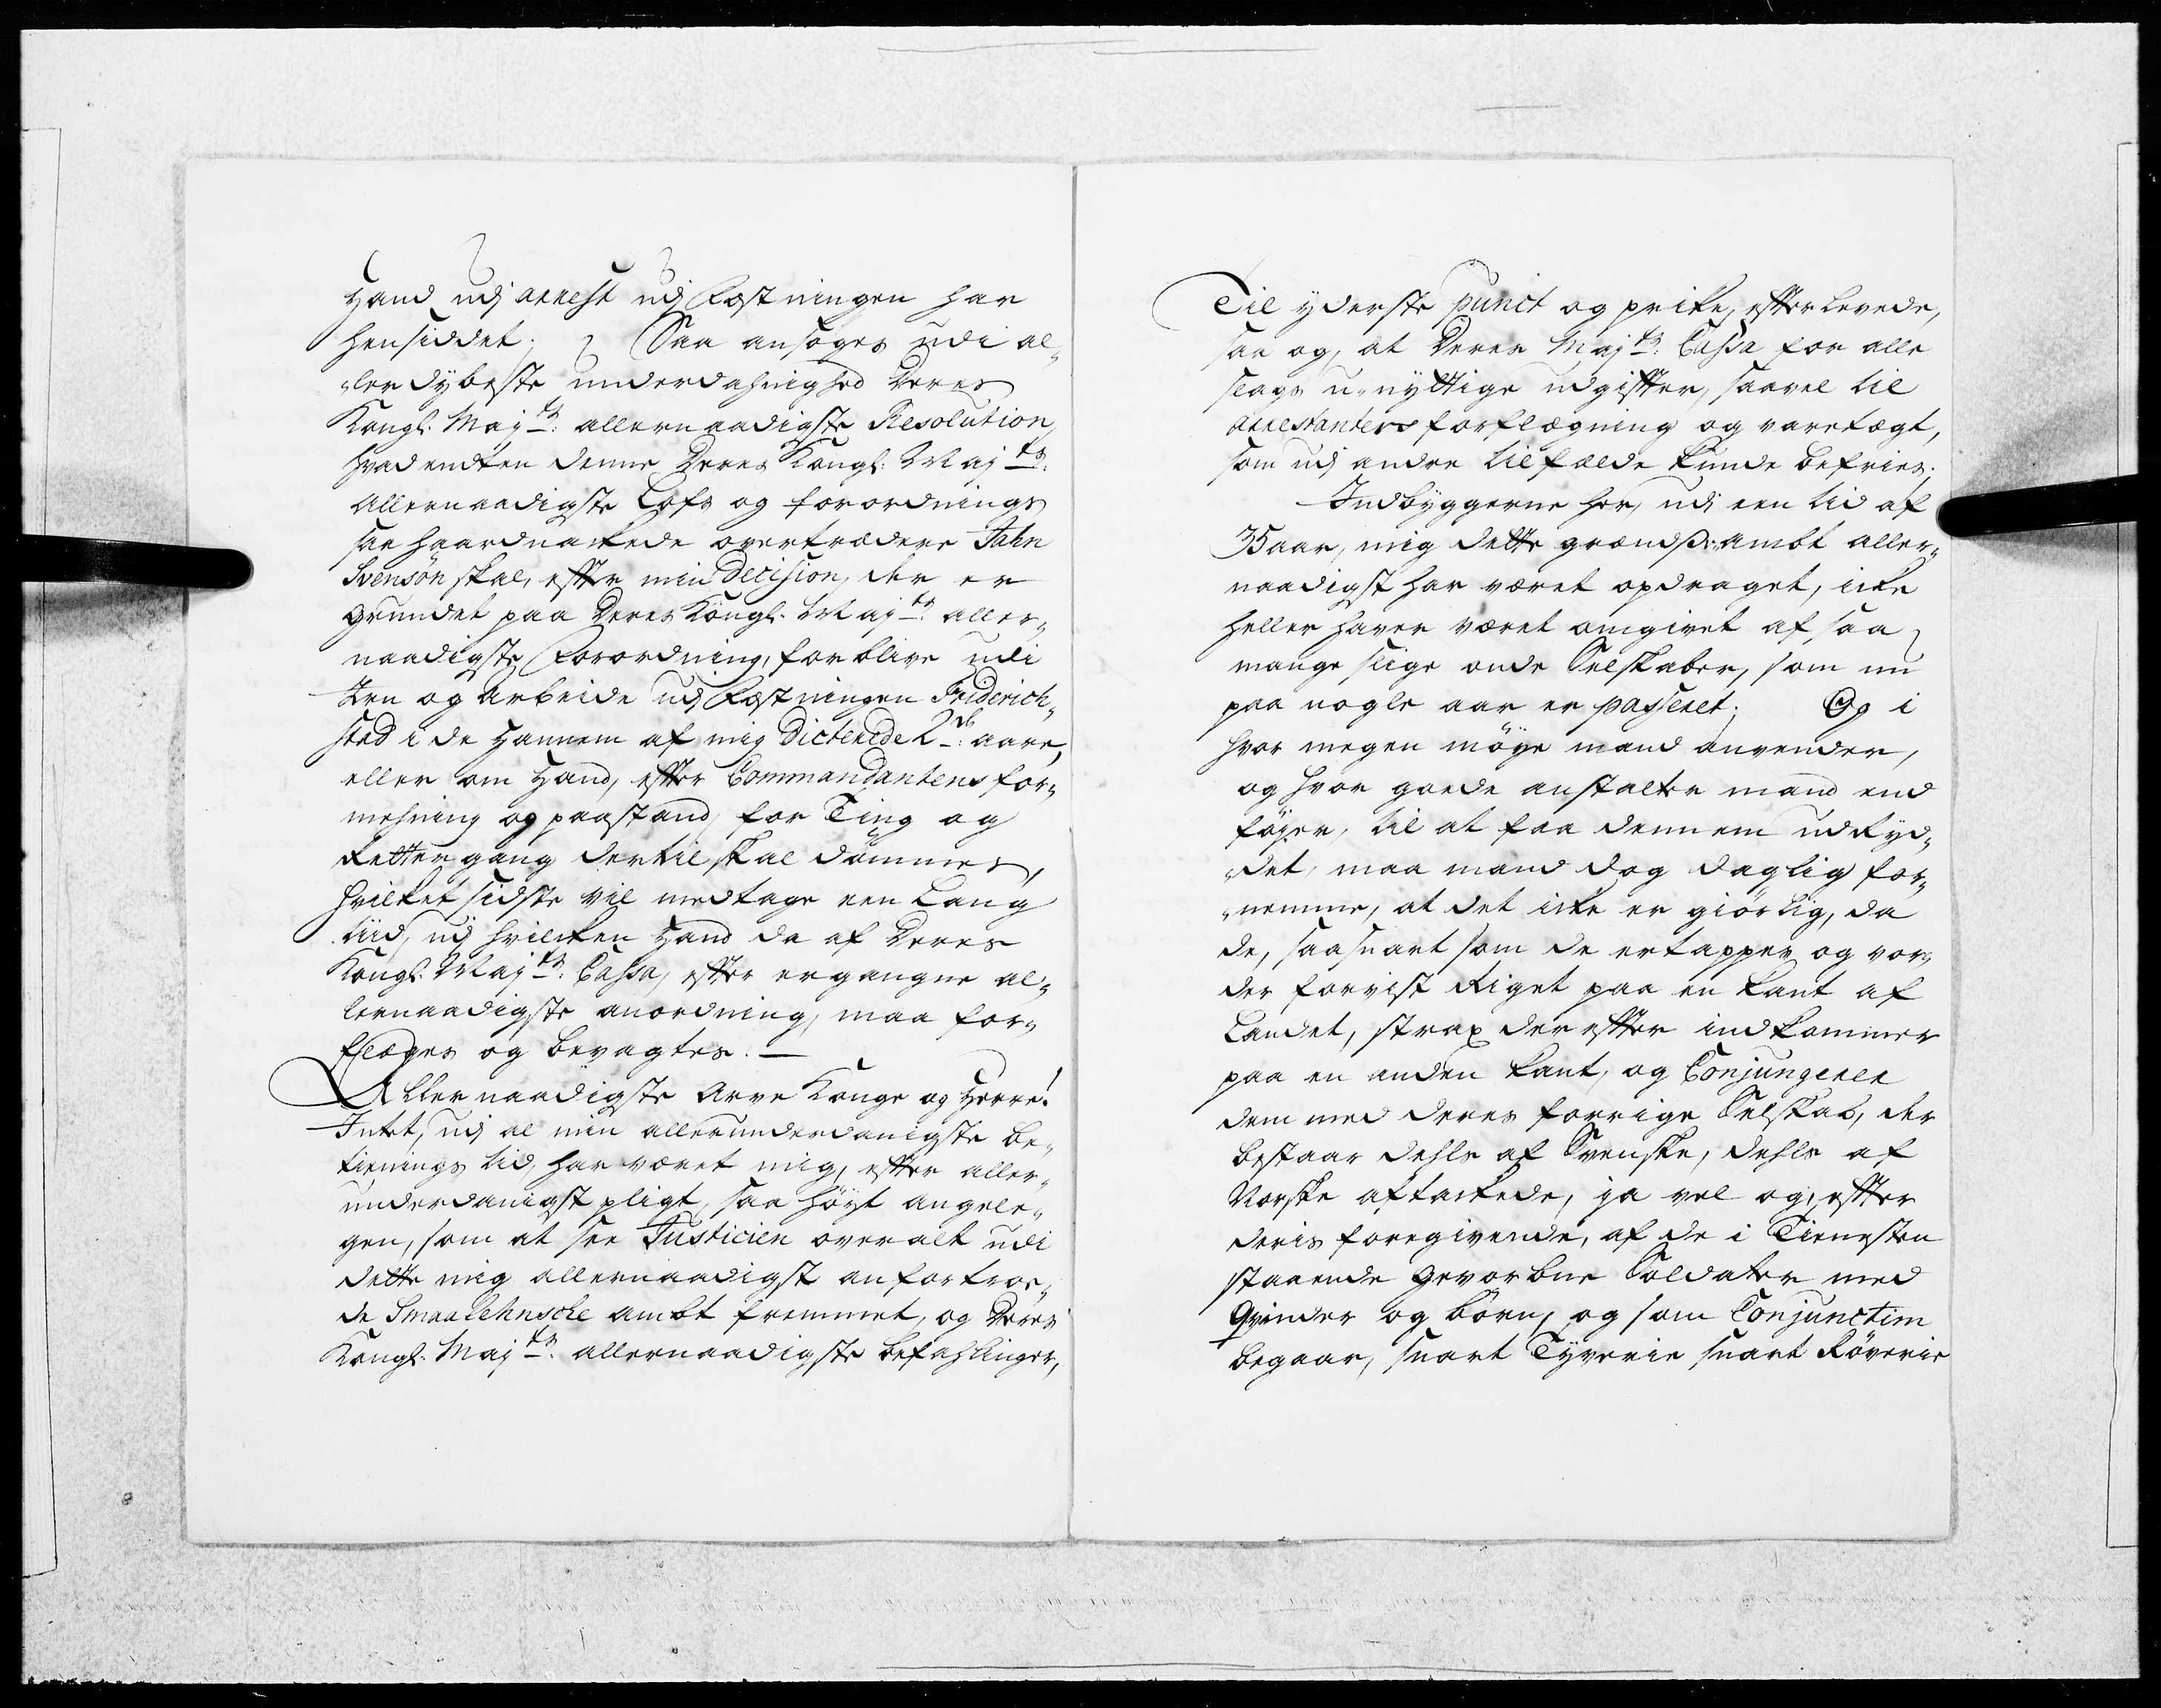 Hand udj arrest udj Fæstningen har
hensiddet; Saa ansøges udi al¬
lerdybeste underdahnighed Deres
Kongl: Majts: allernaadigste Resolution,
hvad endten denne Deres Kongl: Majts:
Allernaadigste Lofs og forordnings
saa haardnackede overtrædere Jahn
Svensön skal, efter min Decision, der er
grundet paa Deres Kongl: Majts: aller¬
naadigste Forordning, forblive udi
Jern og Arbeide udj Fæstningen Friderich¬
stad i de Hannem af mig Dicterede 2de: aare,
eller om Hand, efter Commandantens for¬
mehning og paastand, for Ting og
Rettergang dertil skal dømmes,
hvilket sidste vil medtage een Lang
tiid, udj hvilcken Hand da af Deres
Kongl: Majts: Cassa, efter ergangne al¬
lernaadigste anordning, maa for¬
flæges og bevagtes. —
Allernaadigste Arve Konge og Herre!
Intet, udj al min allerunderdanigste be¬
tienings tid, har været mig, efter aller¬
underdanigst pligt, saa høyt angele¬
gen, som at see Justicien overalt udi
dette mig allernaadigst anfortroe¬
de Smaalehnsche ambt fremmet, og Deres
Kongl: Majts: allernaadigste befahlinger,
Til yderste punct og pricke, efterlevede,
saa og, at Deres Majts: Cassa for alle
slags u-nyttige udgifter, saavel til
arrestanters forflægning og varetægt,
som udj andre tilfælde kunde befries.
Indbyggerne her, udj een tid af
35 aar, mig dette grændse-ambt aller¬
naadigst har været opdraget, icke
heller haver været omgivet af saa
mange slige onde Selskaber, som nu
paa nogle aar er passeret; Og i
hvor megen møye mand anvender,
og hvor goede anstalter mand end
føyer, til at faa dennem udryd¬
det, maa mand dog daglig for¬
nemme, at det icke er giørlig, da
de, saasnart som de ertappes og vor¬
der forvist Riget paa en kant af
Landet, strax derefter indkommer
paa en anden kant, og Conjungerer
dem med deres forrige Selskab, der
bestaar dehls af Svenske, dehls af
Norske aftackede, ja vel og, efter
deris foregivende, af de i Tienesten
staaende gevorbne Soldater med
Qvinder og børn, og som Conjunctim
begaar, snart Tyverie snart Røverie